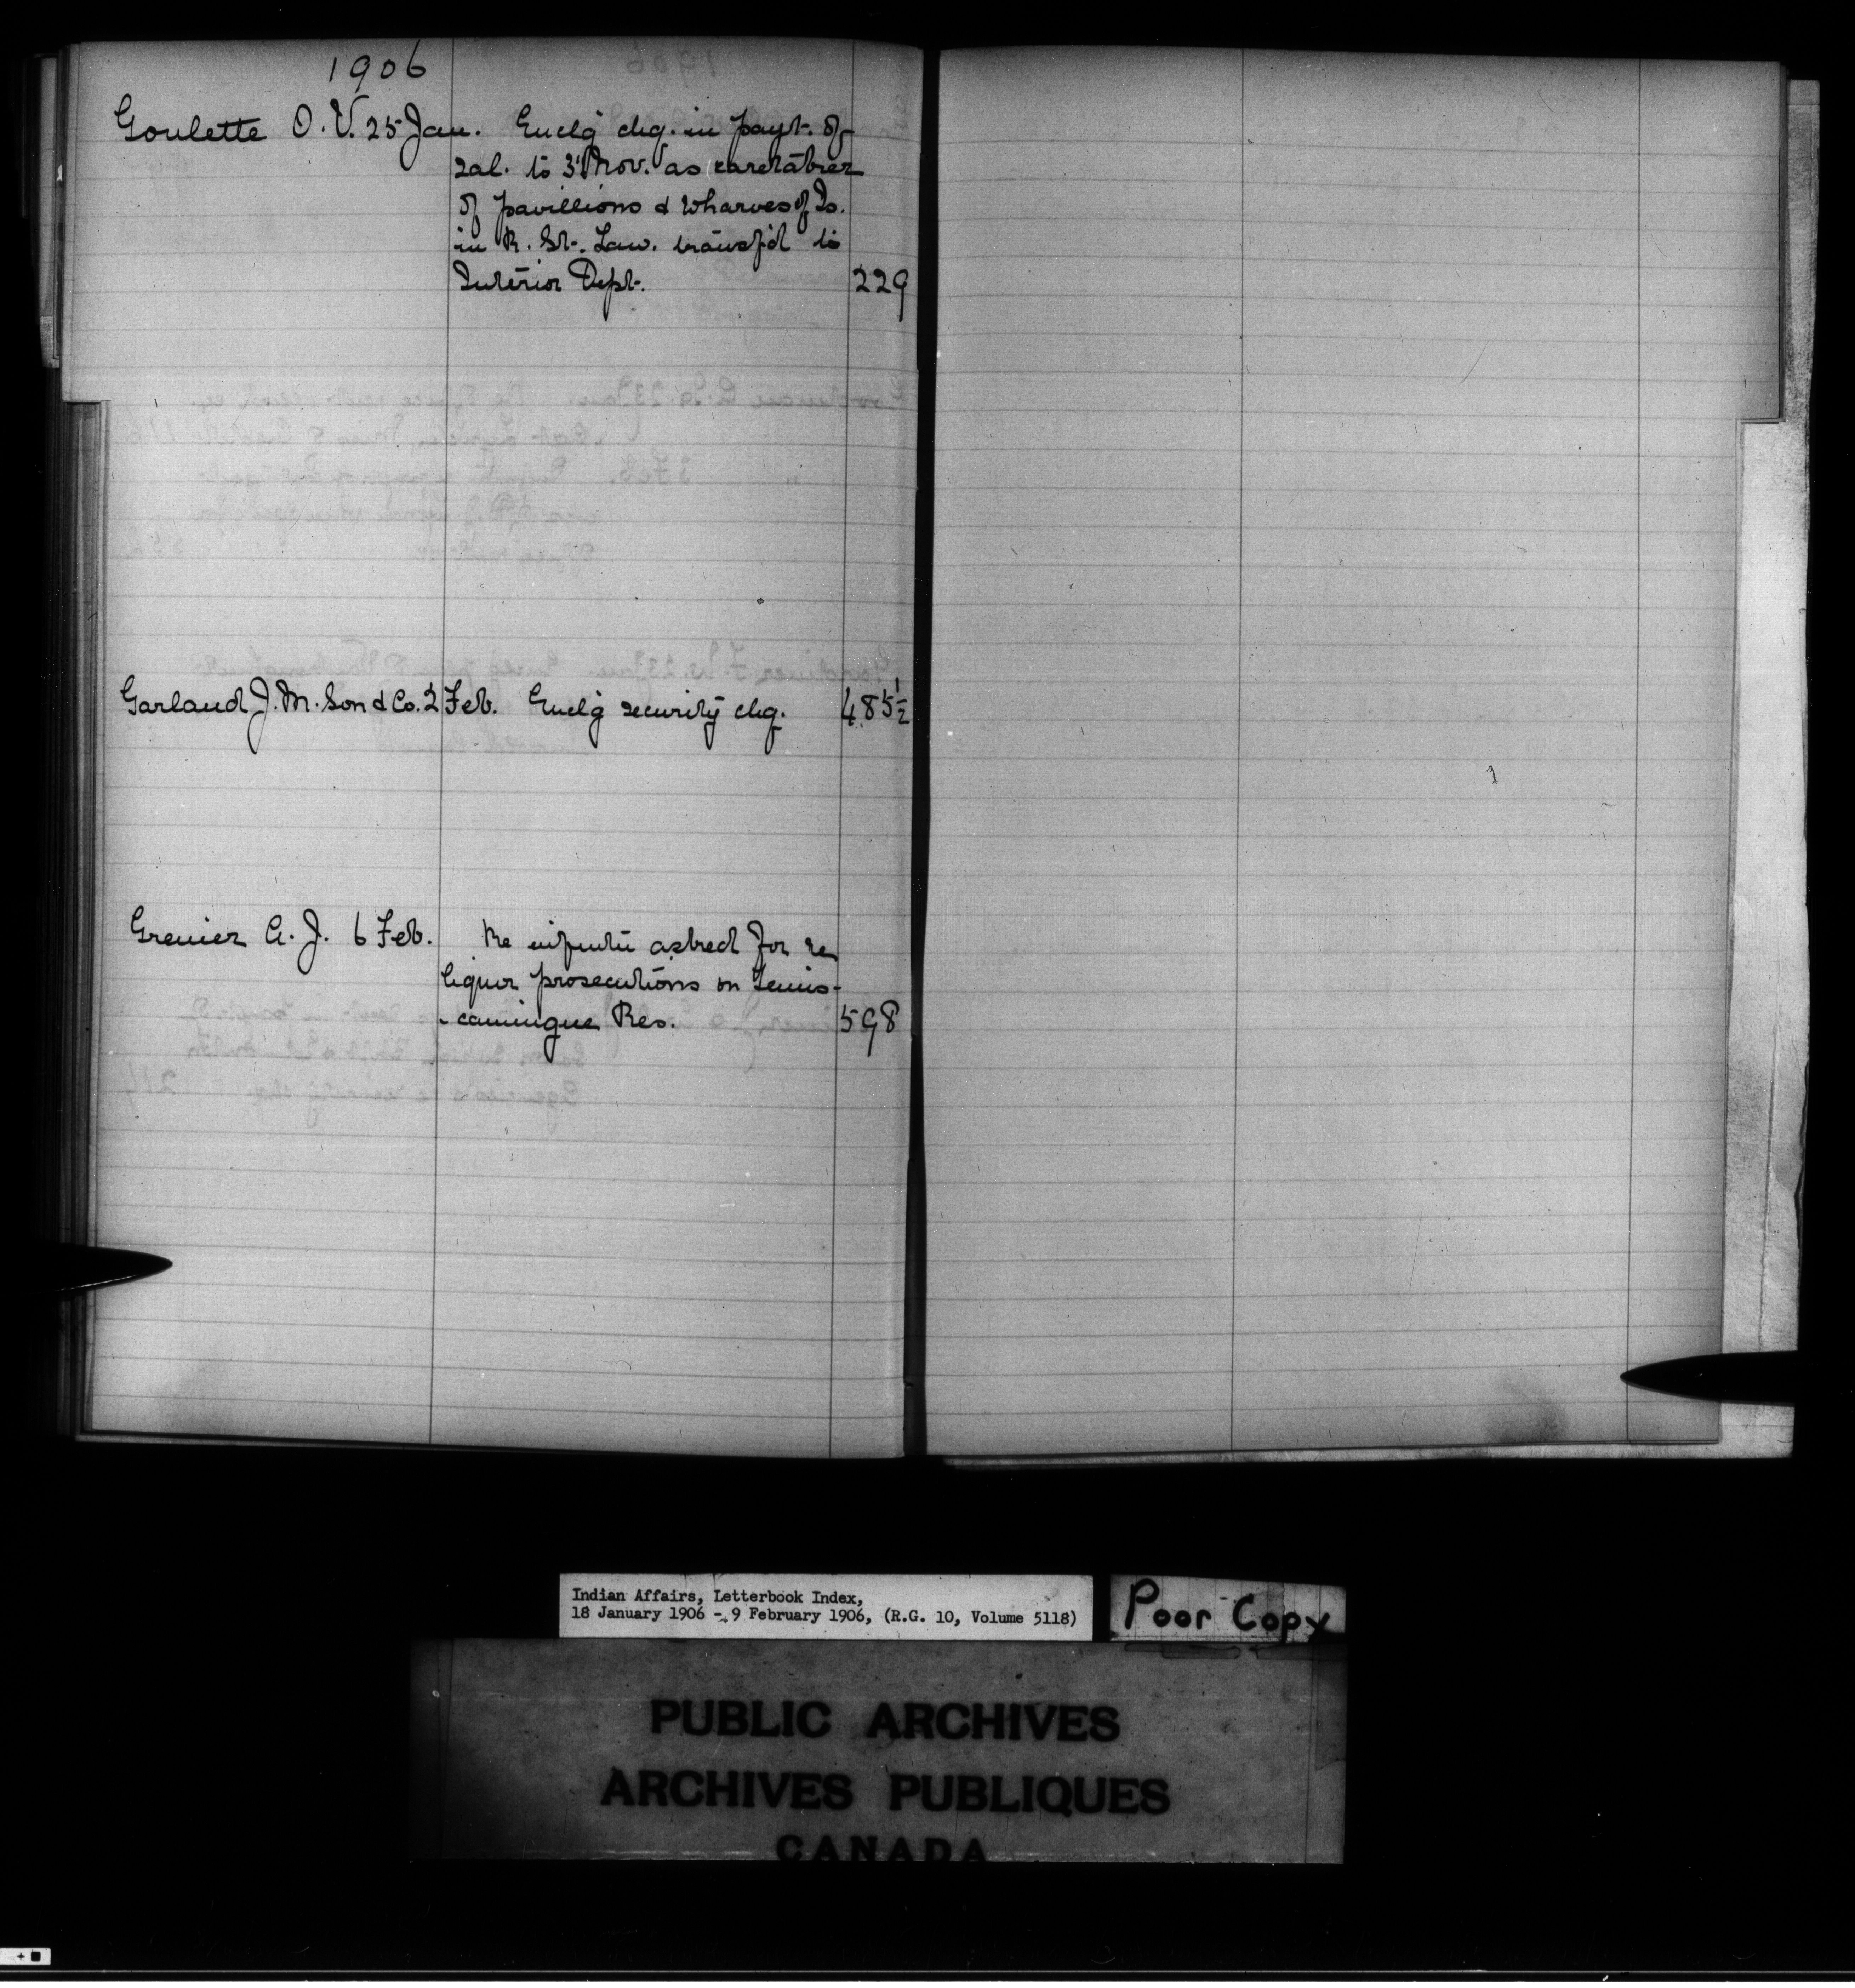 1906
Goulette O. V. 25 Jan. Enclg chq. in payt. of
sal. to 3 Nov. as caretaker
of pavillions & wharves of Is.
in R. St. Law. transf'd to
Interior Dept. 229
Garland J. M. Son & Co. 2 Feb. Enclg security chq. 485½
Grenier A. J. 6 Feb. Re asked for re
liquor prosecutions on Temis-
-camingue Res. 598
Indian Affairs, Letterbook Index,
18 January 1906 - 9 February 1906, (R.G. 10, Volume 5118)
Poor Copy
PUBLIC ARCHIVES
ARCHIVES PUBLIQUES
CANADA